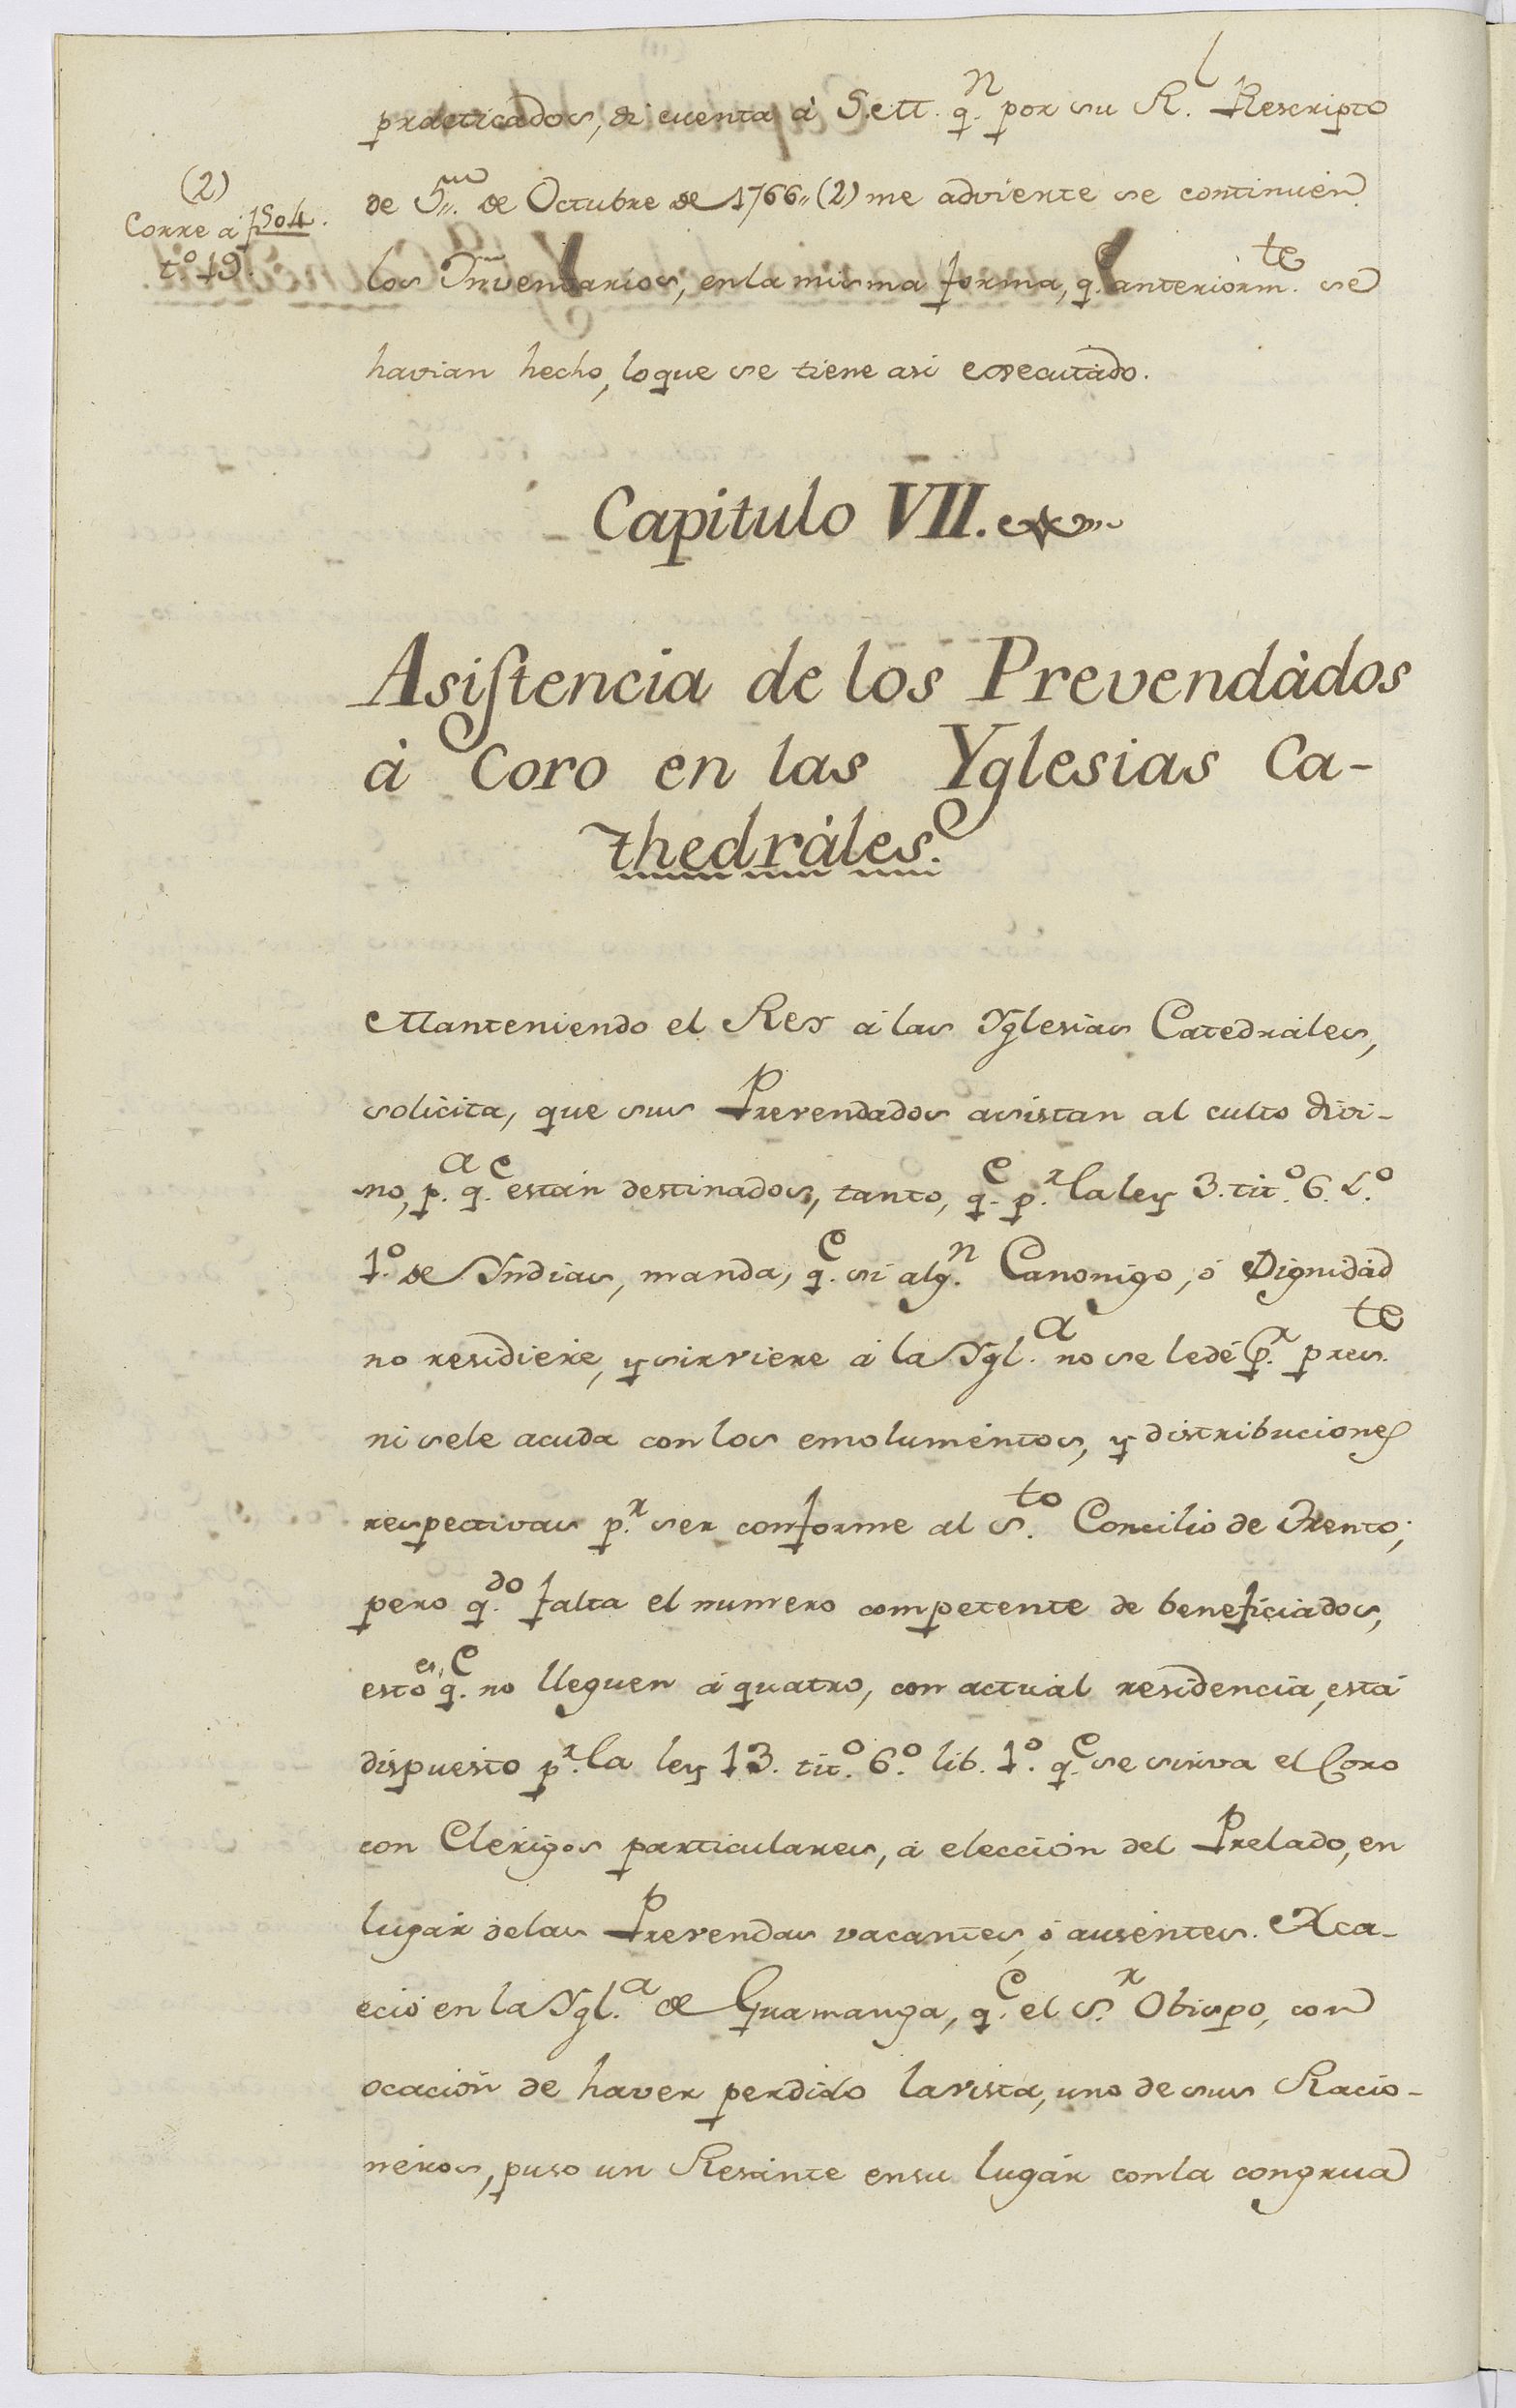 practicados, di cuenta à S.M. q.n por su R.l Rescripto
(2)
Corre à f 504.
t.o 19.
de 5,, de Octubre de 1766,, (2) me advierte se continuen
los Inventarios, en la misma forma, q. anteriorm.te se
havian hecho, lo que se tiene asi executado.
Capitulo VII.
Asiſtencia de los Prevendàdos
à Coro en las Yglesias Ca-
thedràles.
Manteniendo el Rey á las Yglesias Catedráles,
solicita, que sus Prevendados asistan al culto divi-
no, p.a q.e están destinados, tanto, q.e p.r la ley 3. tit.o 6. L.o
1.o de Yndias, manda, q.e si alg.n Canonigo, ó Dignidàd
no residiere, y sirviere á la Ygl.a no se le dé p.r pres.te
ni se le acuda con los emolumentos, y distribuciones
respectivas p.r ser conforme al S.to Concilio de Trento;
pero q.do falta el numero competente de beneficiados,
esto es, q.e no lleguen á quatro, con actual residencia, está
dispuesto p.r la ley 13. tit.o 6.o lib. 1.o q.e se sirva el Coro
con Clérigos particulares, á elección del Prelado, en
lugár de las Prevendas vacantes, ó ausentes. Aca-
eció en la Ygl.a de Guamanga, q.e el S.r Obispo, con
ocación de haver perdido la vista, uno de sus Racio-
néros, puso un Resante en su lugár con la congrua